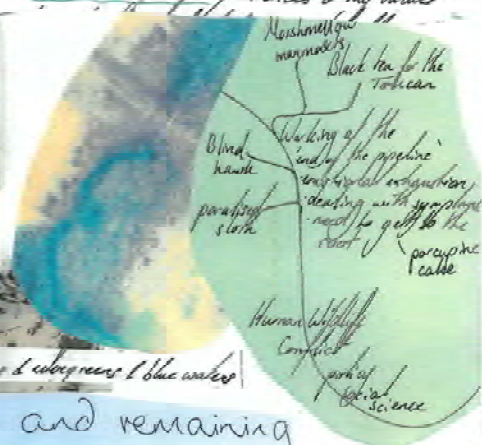 Marshmellow
Black tea for the
Toucan
Working at the
'end of the pipeline'
emotional exhaustion
dealing with symptoms
need to get to the
root
Blind
hawk
paralysed
sloth
porcupine
cake
Human Wildlife
Conflict
policy
social
science
& evergreens & blue waters
and remaining